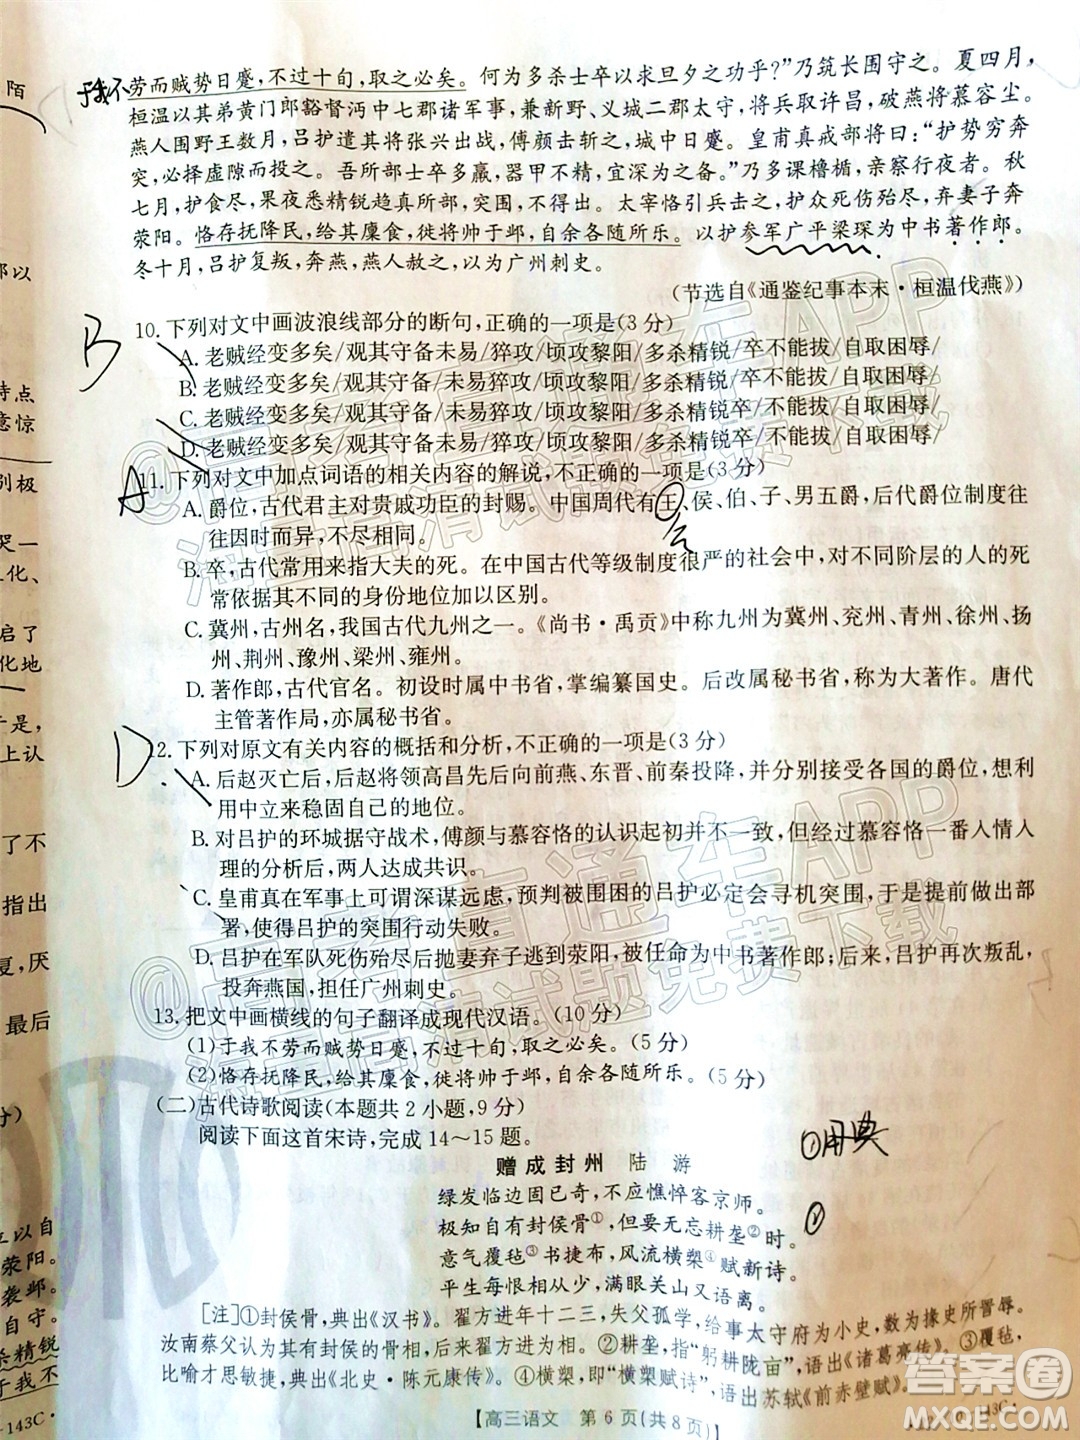 陌
于我不劳而贼势日蹙，不过十旬，取之必矣。何为多杀士卒以求旦夕之功乎？”乃筑长围守之。夏四月，
桓温以其弟黄门郎豁督沔中七郡诸军事，兼新野、义城二郡太守，将兵取许昌，破燕将慕容尘。
燕人围野王数月，吕护遣其将张兴出战，傅颜击斩之，城中日蹙。皇甫真戒部将曰：“护势穷奔
突，必择虚隙而投之。吾所部士卒多羸，器甲不精，宜深为之备。”乃多课橹楯，亲察行夜者。秋
七月，护食尽，果夜悉精锐趋真所部，突围，不得出。太宰恪引兵击之，护众死伤殆尽，弃妻子奔
荥阳。恪存抚降民，给其廪食，徙将帅于邺，自余各随所乐。以护参军广平梁琛为中书著作郎。
冬十月，吕护复叛，奔燕，燕人赦之，以为广州刺史。
（节选自《通鉴纪事本末·桓温伐燕》）
B
10. 下列对文中画波浪线部分的断句，正确的一项是（3 分）
A. 老贼经变多矣/观其守备未易/猝攻/顷攻黎阳/多杀精锐/卒不能拔/自取困辱/
B. 老贼经变多矣/观其守备/未易猝攻/顷攻黎阳/多杀精锐/卒不能拔/自取困辱/
C. 老贼经变多矣/观其守备/未易猝攻/顷攻黎阳/多杀精锐卒/不能拔/自取困辱/
D. 老贼经变多矣/观其守备未易/猝攻/顷攻黎阳/多杀精锐卒/不能拔/自取困辱/
A
11. 下列对文中加点词语的相关内容的解说，不正确的一项是（3 分）
A. 爵位，古代君主对贵戚功臣的封赐。中国周代有王、侯、伯、子、男五爵，后代爵位制度往
往因时而异，不尽相同。
公
B. 卒，古代常用来指大夫的死。在中国古代等级制度很严的社会中，对不同阶层的人的死
常依据其不同的身份地位加以区别。
C. 冀州，古州名，我国古代九州之一。《尚书·禹贡》中称九州为冀州、兖州、青州、徐州、扬
州、荆州、豫州、梁州、雍州。
D. 著作郎，古代官名。初设时属中书省，掌编纂国史。后改属秘书省，称为大著作。唐代
主管著作局，亦属秘书省。
D
12. 下列对原文有关内容的概括和分析，不正确的一项是（3 分）
A. 后赵灭亡后，后赵将领高昌先后向前燕、东晋、前秦投降，并分别接受各国的爵位，想利
用中立来稳固自己的地位。
B. 对吕护的环城据守战术，傅颜与慕容恪的认识起初并不一致，但经过慕容恪一番入情入
理的分析后，两人达成共识。
C. 皇甫真在军事上可谓深谋远虑，预判被围困的吕护必定会寻机突围，于是提前做出部
署，使得吕护的突围行动失败。
D. 吕护在军队死伤殆尽后抛妻弃子逃到荥阳，被任命为中书著作郎；后来，吕护再次叛乱，
投奔燕国，担任广州刺史。
13. 把文中画横线的句子翻译成现代汉语。（10 分）
（1）于我不劳而贼势日蹙，不过十旬，取之必矣。（5 分）
（2）恪存抚降民，给其廪食，徙将帅于邺，自余各随所乐。（5 分）
（二）古代诗歌阅读（本题共 2 小题，9 分）
阅读下面这首宋诗，完成 14～15 题。
①用典
赠成封州 陆 游
绿发临边固已奇，不应憔悴客京师。
极知自有封侯骨①，但要无忘耕垄②时。
意气覆毡③书捷布，风流横槊④赋新诗。
平生每恨相从少，满眼关山又语离。
［注］①封侯骨，典出《汉书》。翟方进年十二三，失父孤学，给事太守府为小史，数为掾史所詈辱。
汝南蔡父为其分析认为有封侯的骨相，后来翟方进为相封侯。②耕垄，即“躬耕陇亩”，语出《诸葛亮传》。③覆毡，
比喻才思敏捷，典出《北史·陈元康传》。④横槊，即“横槊赋诗”，语出苏轼《前赤壁赋》。
【高三语文 第 6 页（共 8 页）】